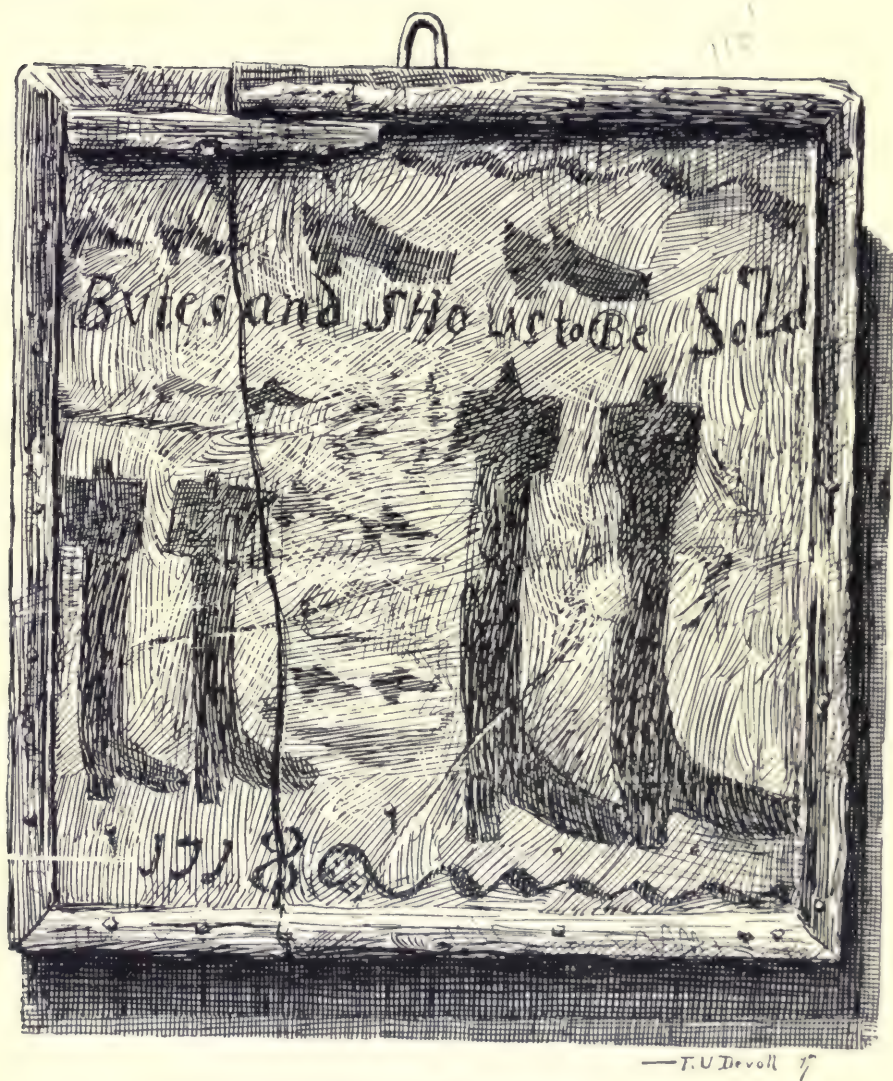 Bvtes and SHo us to Be Sold
1718
T. U Devoll